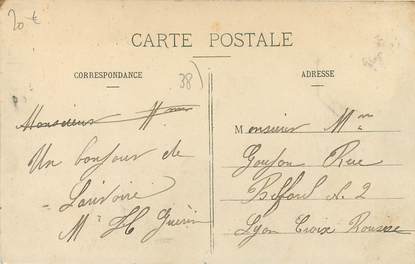 20 €
CARTE POSTALE
CORRESPONDANCE
38)
ADRESSE
Monsieur
Monsieur Mme
Un bonjour de
Goujon Rue
Belfort N. 2
Mr H Guérin
Lyon Croix Rousse